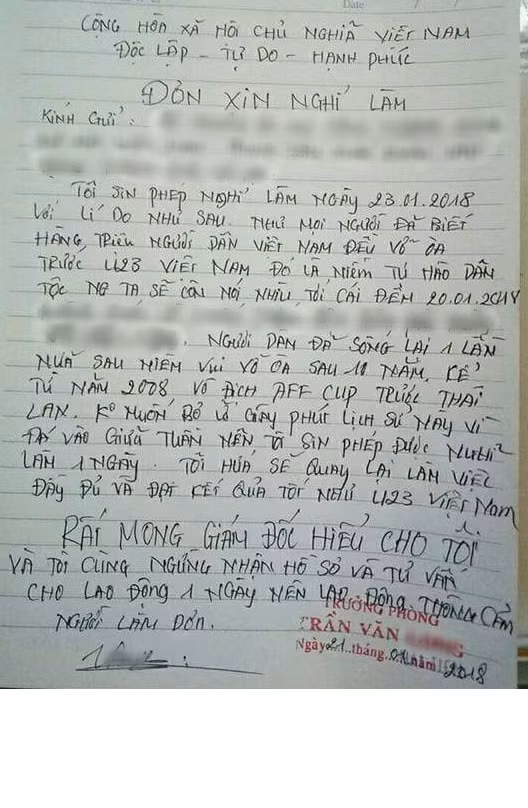 Date
CỘNG HÒA XÃ HỘI CHỦ NGHĨA VIỆT NAM
ĐỘC LẬP - TỰ DO - HẠNH PHÚC
ĐƠN XIN NGHỈ LÀM
KÍNH GỬI :
TÔI SIN PHÉP NGHỈ LÀM NGÀY 23.01.2018
VỚI LÍ DO NHƯ SAU. NHƯ MỌI NGƯỜI ĐÃ BIẾT
HÀNG TRIỆU NGƯỜI DÂN VIỆT NAM ĐỀU VỠ ÒA
TRƯỚC U23 VIỆT NAM ĐÓ LÀ NIỀM TỰ HÀO DÂN
TỘC NG TA SẼ CÒN NÓI NHIỀU TỚI CÁI ĐÊM 20.01.2018
. NGƯỜI DÂN ĐÃ SỐNG LẠI 1 LẦN
NỮA SAU NIỀM VUI VỠ ÒA SAU 10 NĂM, KỂ
TỪ NĂM 2008 VÔ ĐỊCH AFF CUP TRƯỚC THÁI
LAN. KO MUỐN BỎ LỠ GIÂY PHÚT LỊCH SỬ NÀY VÌ
ĐÁ VÀO GIỮA TUẦN NÊN TÔI SIN PHÉP ĐƯỢC NGHỈ
LÀM 1 NGÀY. TÔI HỨA SẼ QUAY LẠI LÀM VIỆC
ĐẦY ĐỦ VÀ ĐẠT KẾT QUẢ TỐT NHƯ U23 VIỆT NAM
RẤT MONG GIÁM ĐỐC HIỂU CHO TÔI
VÀ TÔI CŨNG NGỪNG NHẬN HỒ SƠ VÀ TƯ VẤN
CHO LAO ĐỘNG 1 NGÀY NÊN LAO ĐỘNG THÔNG CẢM
NGƯỜI LÀM ĐƠN.
TRƯỞNG PHÒNG
TRẦN VĂN
Ngày 21..tháng.01 năm 2018